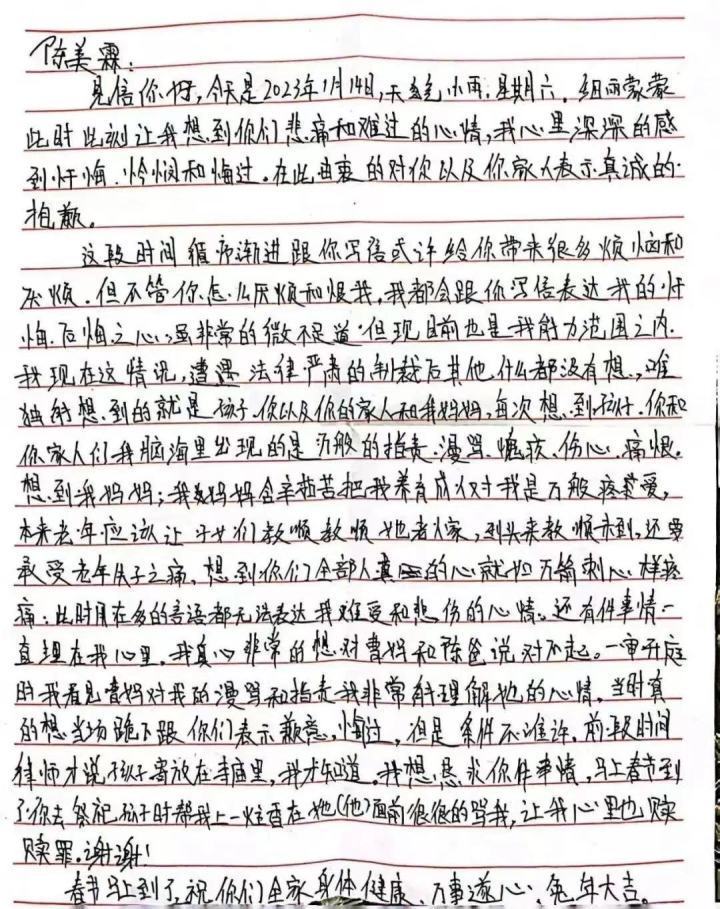 陈美霖：
见信你好，今天是2023年1月14日，天气小雨，星期六，细雨蒙蒙
此时此刻让我想到你们悲痛和难过的心情，我心里深深的感
到忏悔、怜悯和悔过。在此由衷的对你以及你家人表示真诚的
抱歉。
这段时间循序渐进跟你写信或许给你带来很多烦恼和
厌烦。但不管你怎么厌烦和恨我，我都会跟你写信表达我的忏
悔、后悔之心，虽非常的微不足道，但现目前也是我能力范围之内。
我现在这情况，遭遇法律严肃的制裁后其他什么都没有想，唯
独能想到的就是孩子、你以及你的家人和我妈妈，每次想到孩子、你和
你家人们我脑海里出现的是万般的指责、漫骂、愧疚、伤心、痛恨。
想到我妈妈；我妈妈含辛茹苦把我养育成人对我是万般疼爱，
本来老年应该让子女们教顺教顺她老人家，到头来教顺未到，还要
承受老年失子之痛，想到你们全部人真的心就如万箭刺心样疼
痛；此时用在多的言语都无法表达我难受和悲伤的心情。还有件事情一
直埋在我心里，我真心非常的想对曹妈和陈爸说对不起。一审开庭
时我看见曹妈对我的漫骂和指责我非常能理解她的心情，当时真
的想当场跪下跟你们表示歉意、悔过，但是条件不准许，前段时间
律师才说孩子寄放在寺庙里，我才知道。我想恳求你件事情，马上春节到
了你去祭祀孩子时帮我上一炷香在她(他)面前狠狠的骂我，让我心里也赎
赎罪。谢谢！
春节马上到了，祝你们全家身体健康、万事遂心、兔年大吉。